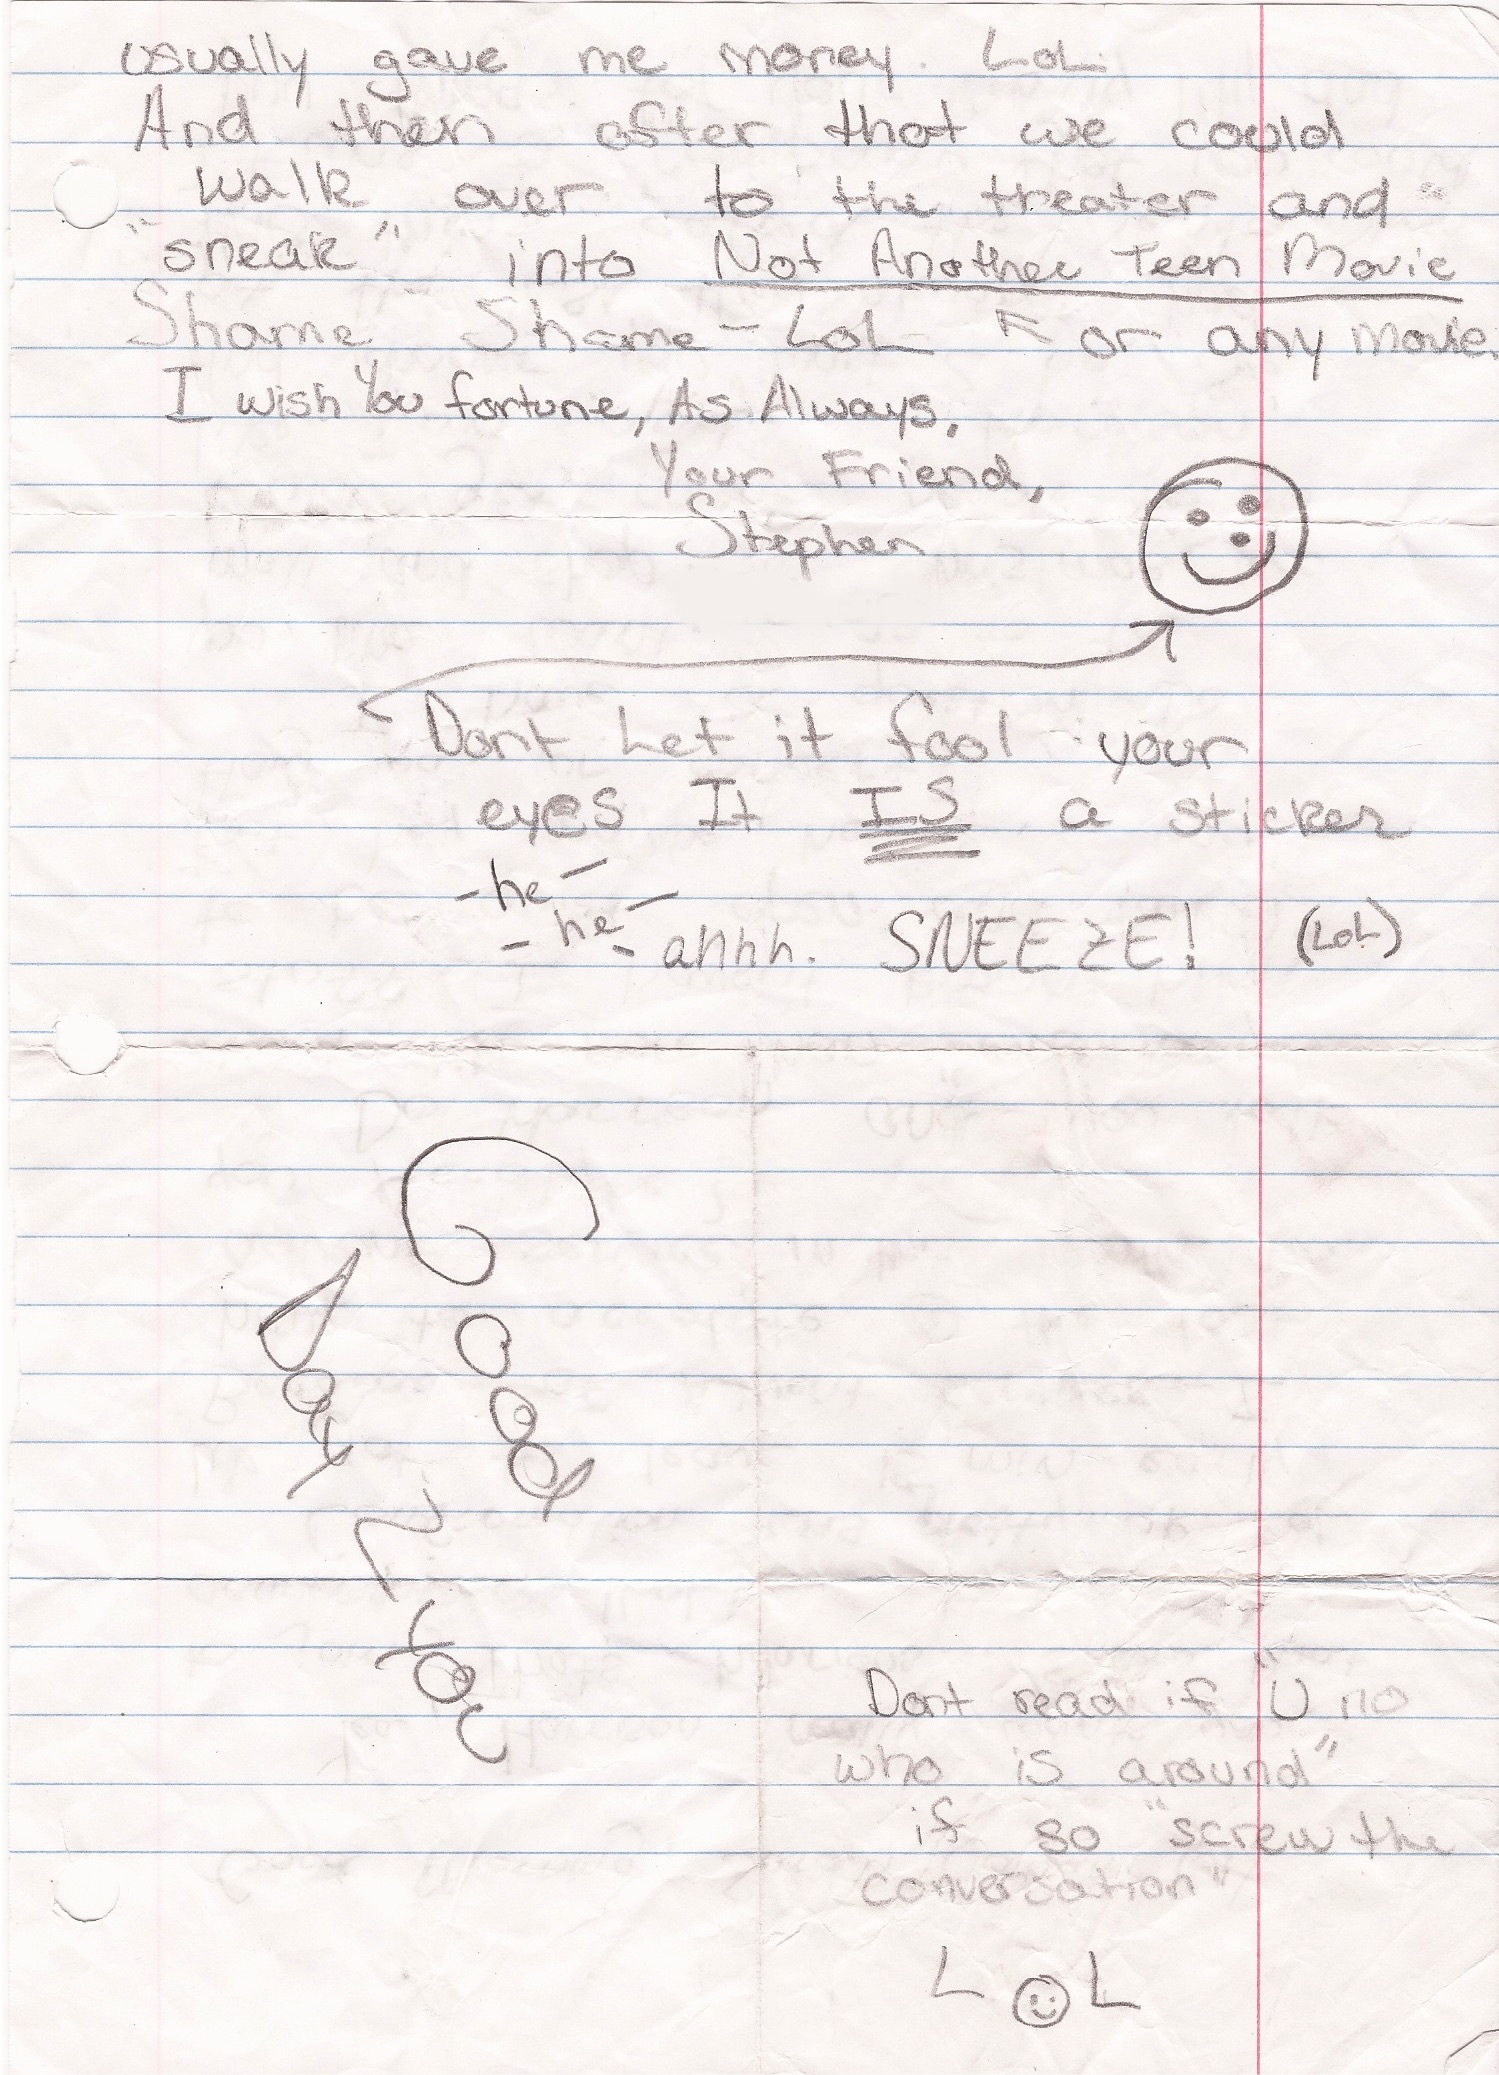 usually gave me money. LoL
And then after that we could
walk over to the treater and "
"sneak" into Not Another Teen Movie
Shame Shame - LoL ↖ or any movie.
I wish You fortune, As Always,
Your Friend,
Stephen
Dont Let it fool your
eyes It IS a sticker
-he-
-he-
- ahhh. SNEEZE! (LoL)
Dont read if "U no
who is around"
if so "screw the
conversation"
LOL